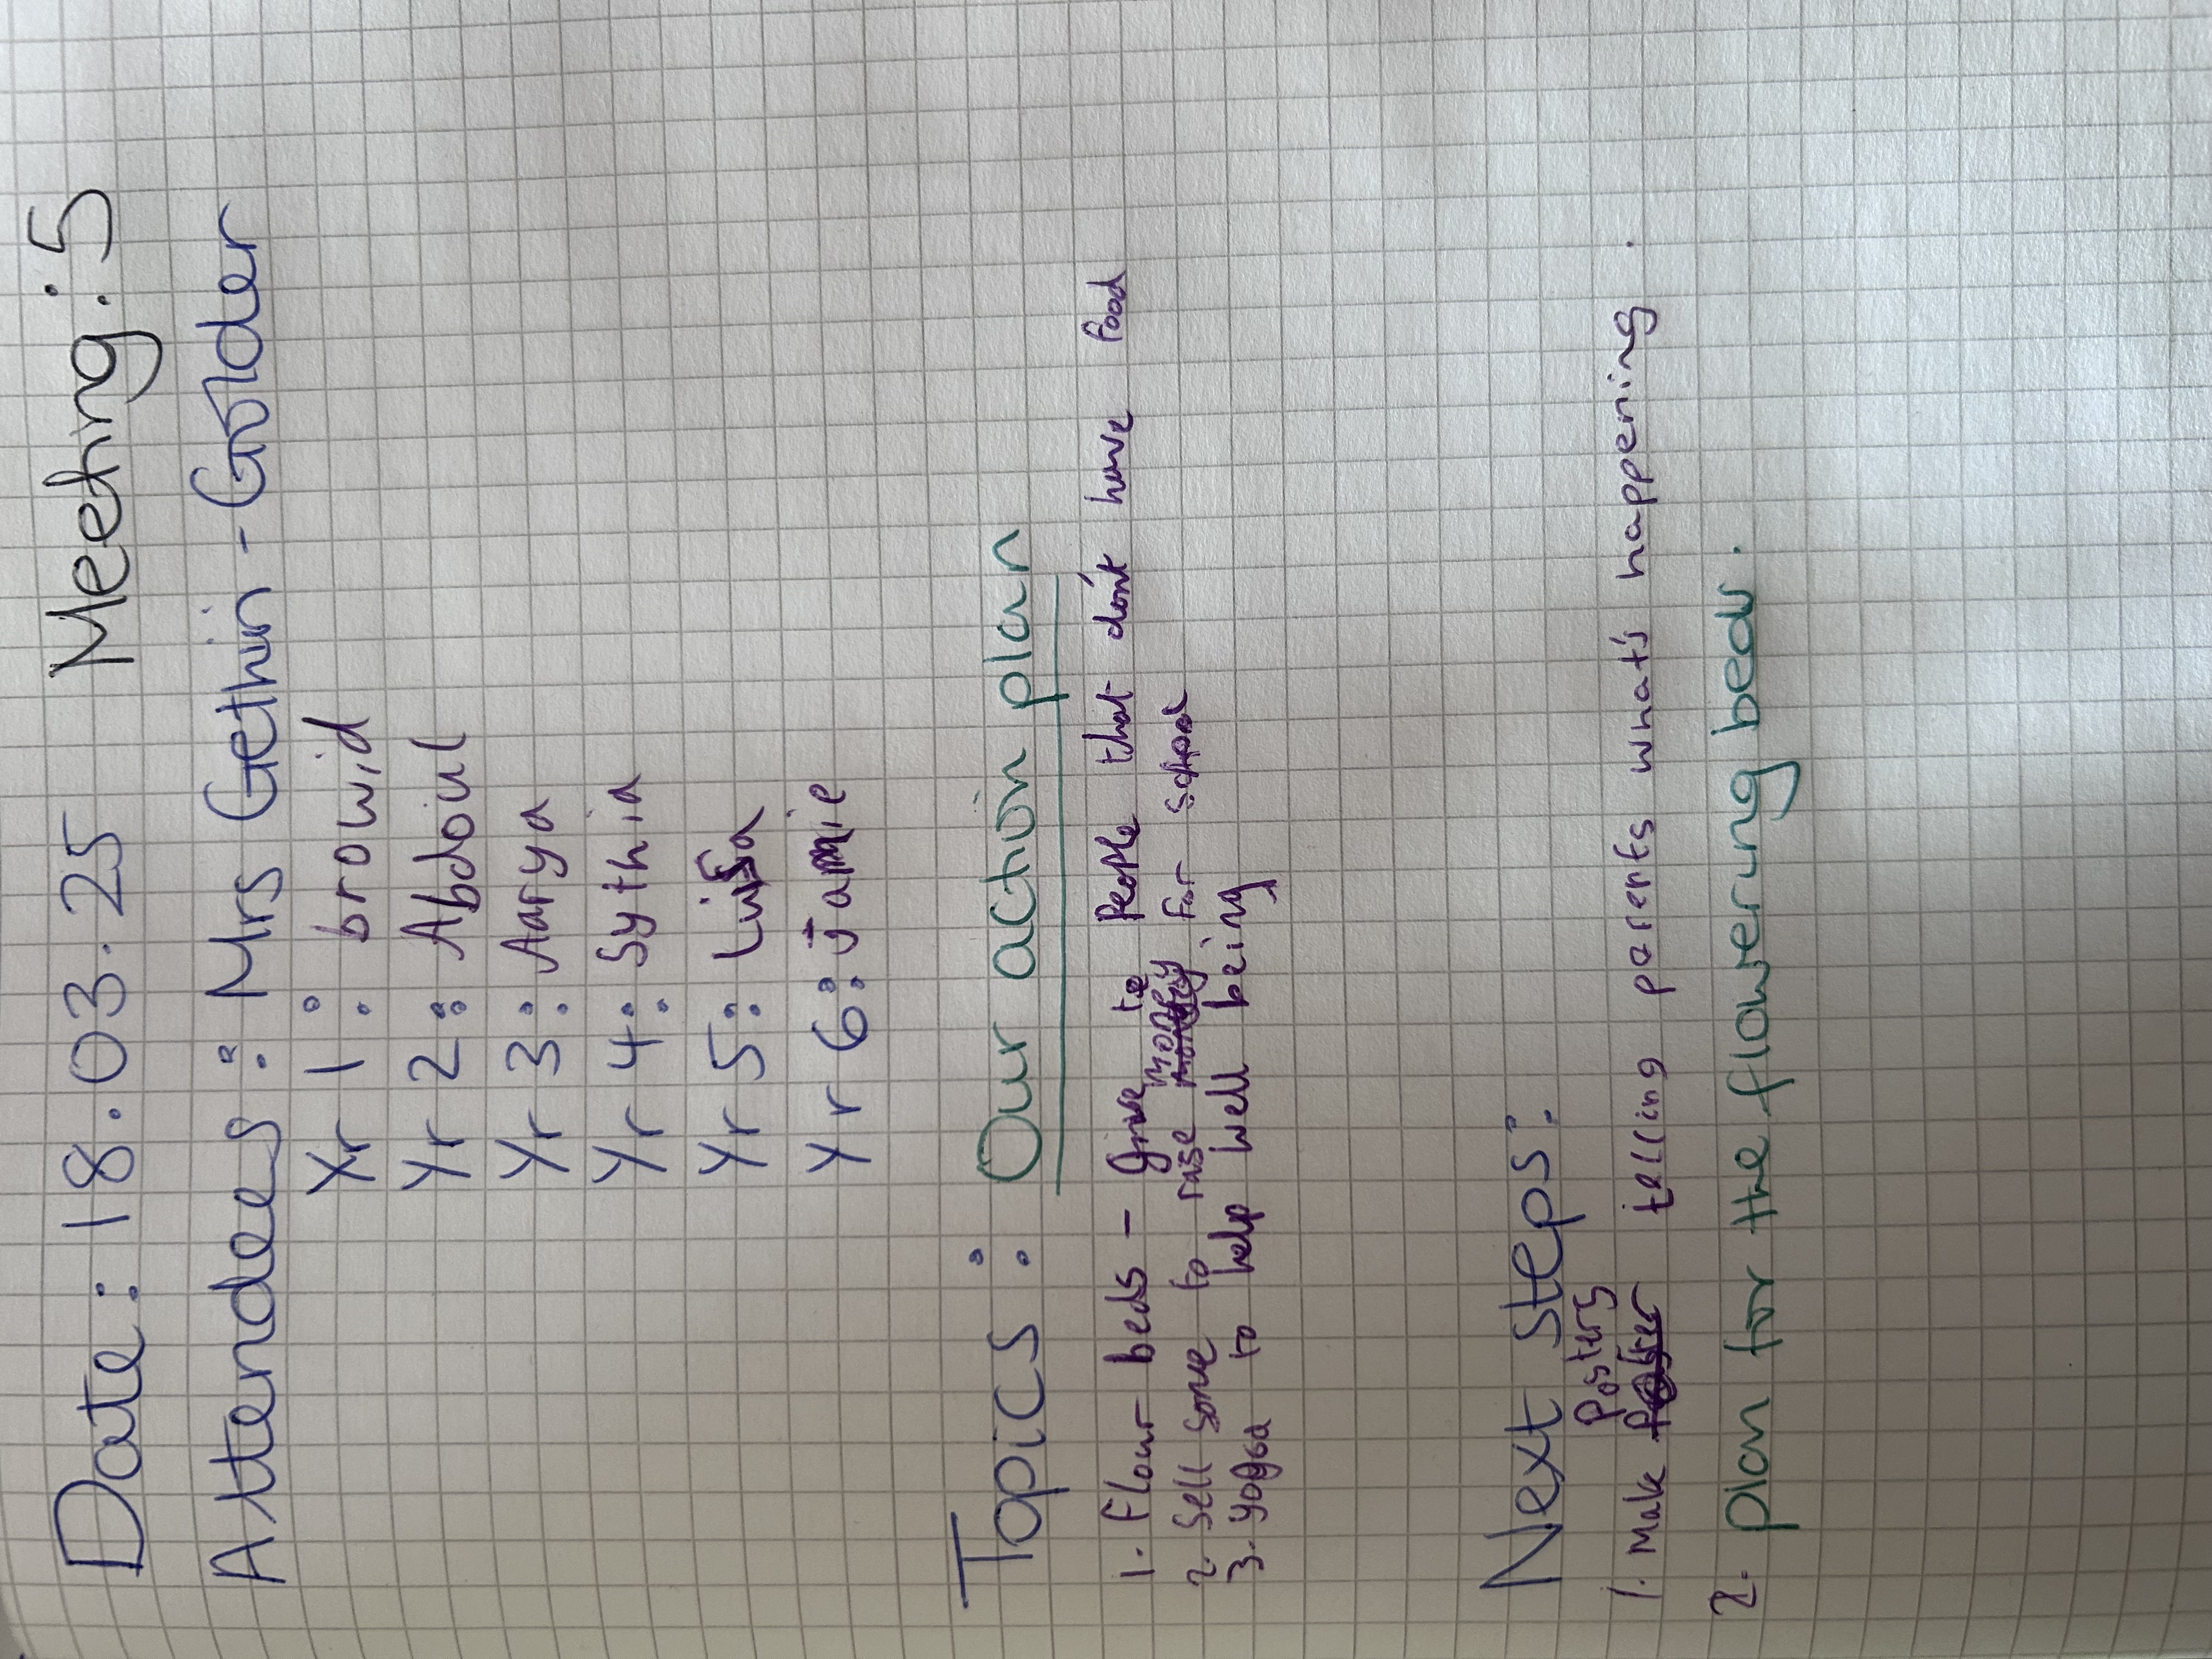 Date: 18.03.25 Meeting: 5
Attendees: Mrs Gethin-Golder
Yr 1: browid
Yr 2: Abdoul
Yr 3: Aarya
Yr 4: Sythia
Yr 5: Luisa
Yr 6: Jamie
Topics: Our action plan
1. Flour beds - Give to People that don't have food
2. Sell some to raise money for school
3. yogga to help well being
Next steps:
1. Mak Posters telling parents what's happening.
2. plan for the flowerung beds.